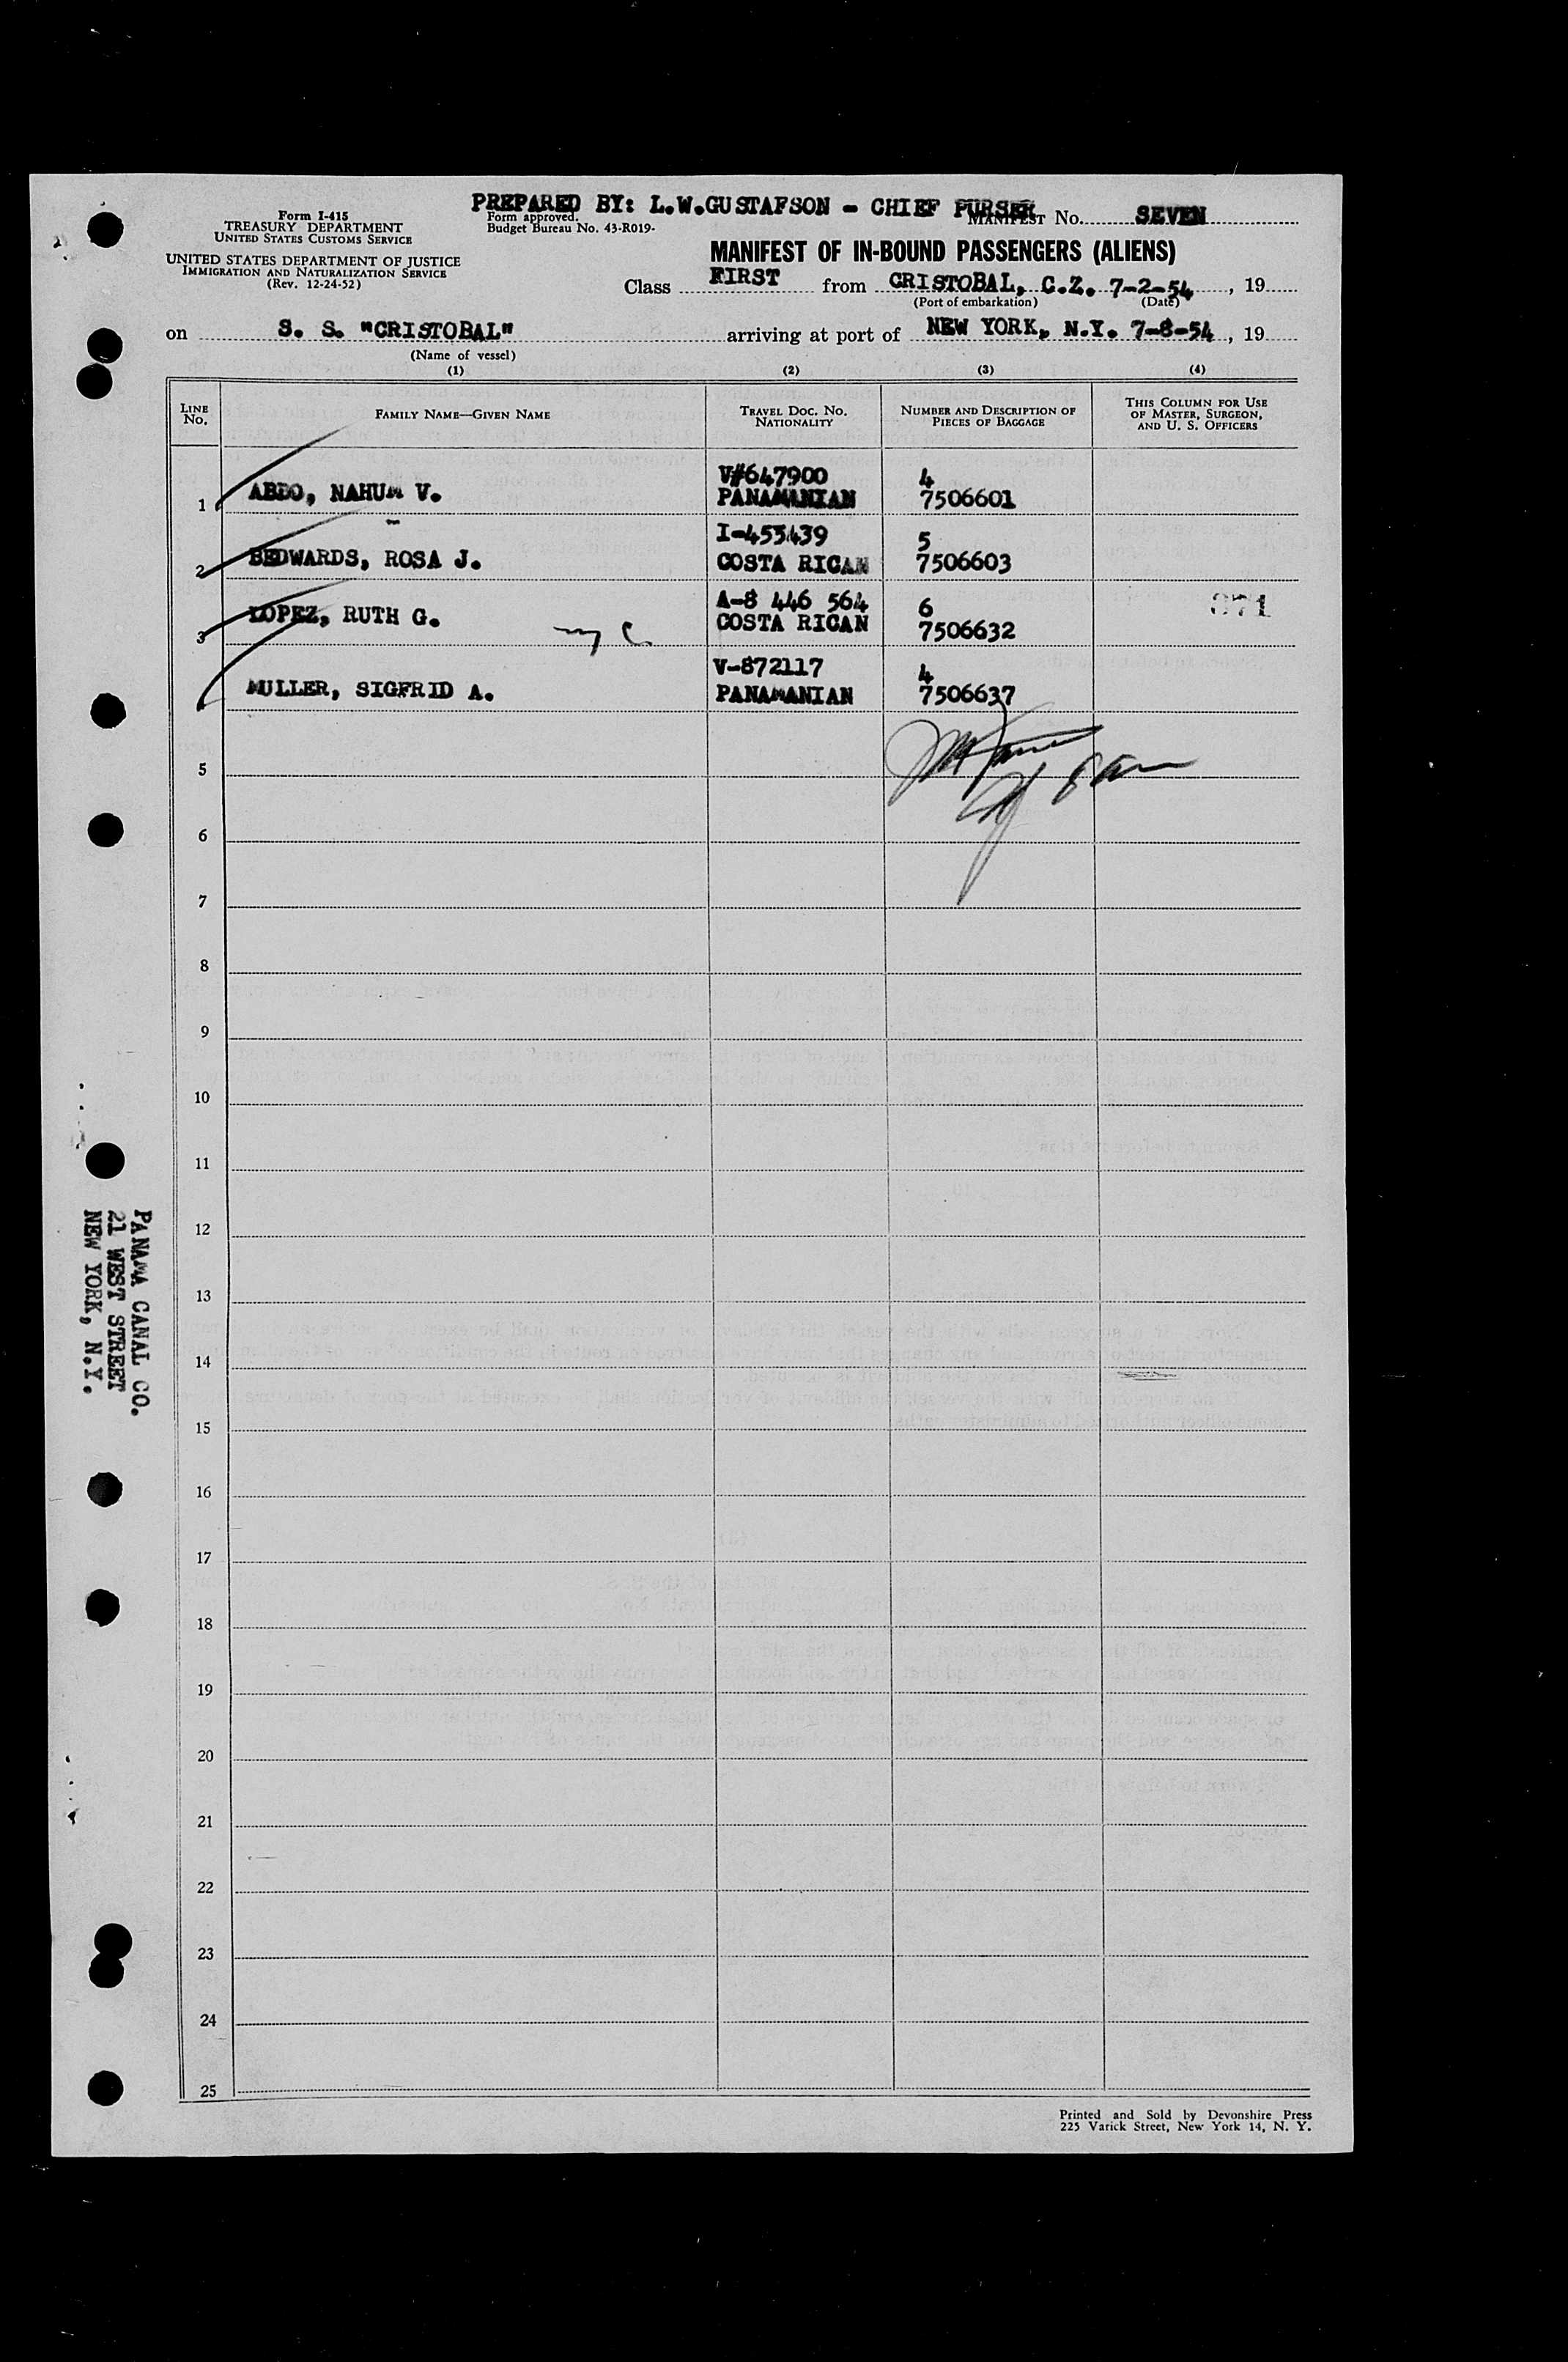 PREPARED BY: L.W.GUSTAFSON - CHIEF PURSER
Form I-415
TREASURY DEPARTMENT
UNITED STATES CUSTOMS SERVICE
UNITED STATES DEPARTMENT OF JUSTICE
IMMIGRATION AND NATURALIZATION SERVICE
(Rev. 12-24-52)
Form approved.
Budget Bureau No. 43-R019-
MANIFEST No. SEVEN
MANIFEST OF IN-BOUND PASSENGERS (ALIENS)
Class FIRST from CRISTOBAL, C.Z. 7-2-54, 19
(Port of embarkation) (Date)
on S. S. "CRISTOBAL" arriving at port of NEW YORK, N.Y. 7-8-54, 19
(Name of vessel)
(1) (2) (3) (4)
LINE NO. FAMILY NAME—GIVEN NAME TRAVEL DOC. NO. NATIONALITY NUMBER AND DESCRIPTION OF PIECES OF BAGGAGE THIS COLUMN FOR USE OF MASTER, SURGEON, AND U. S. OFFICERS
V#647900 4
1 ABDO, NAHUM V. PANAMANIAN 7506601
I-453439 5
2 BEDWARDS, ROSA J. COSTA RICAN 7506603
A-8 446 564 6 371
3 LOPEZ, RUTH G. COSTA RICAN 7506632
V-872117 4
4 MULLER, SIGFRID A. PANAMANIAN 7506637
5
6
7
8
9
10
11
12
13
14
15
16
17
18
19
20
21
22
23
24
25
PANAMA CANAL CO.
21 WEST STREET
NEW YORK, N.Y.
Printed and Sold by Devonshire Press
225 Varick Street, New York 14, N. Y.